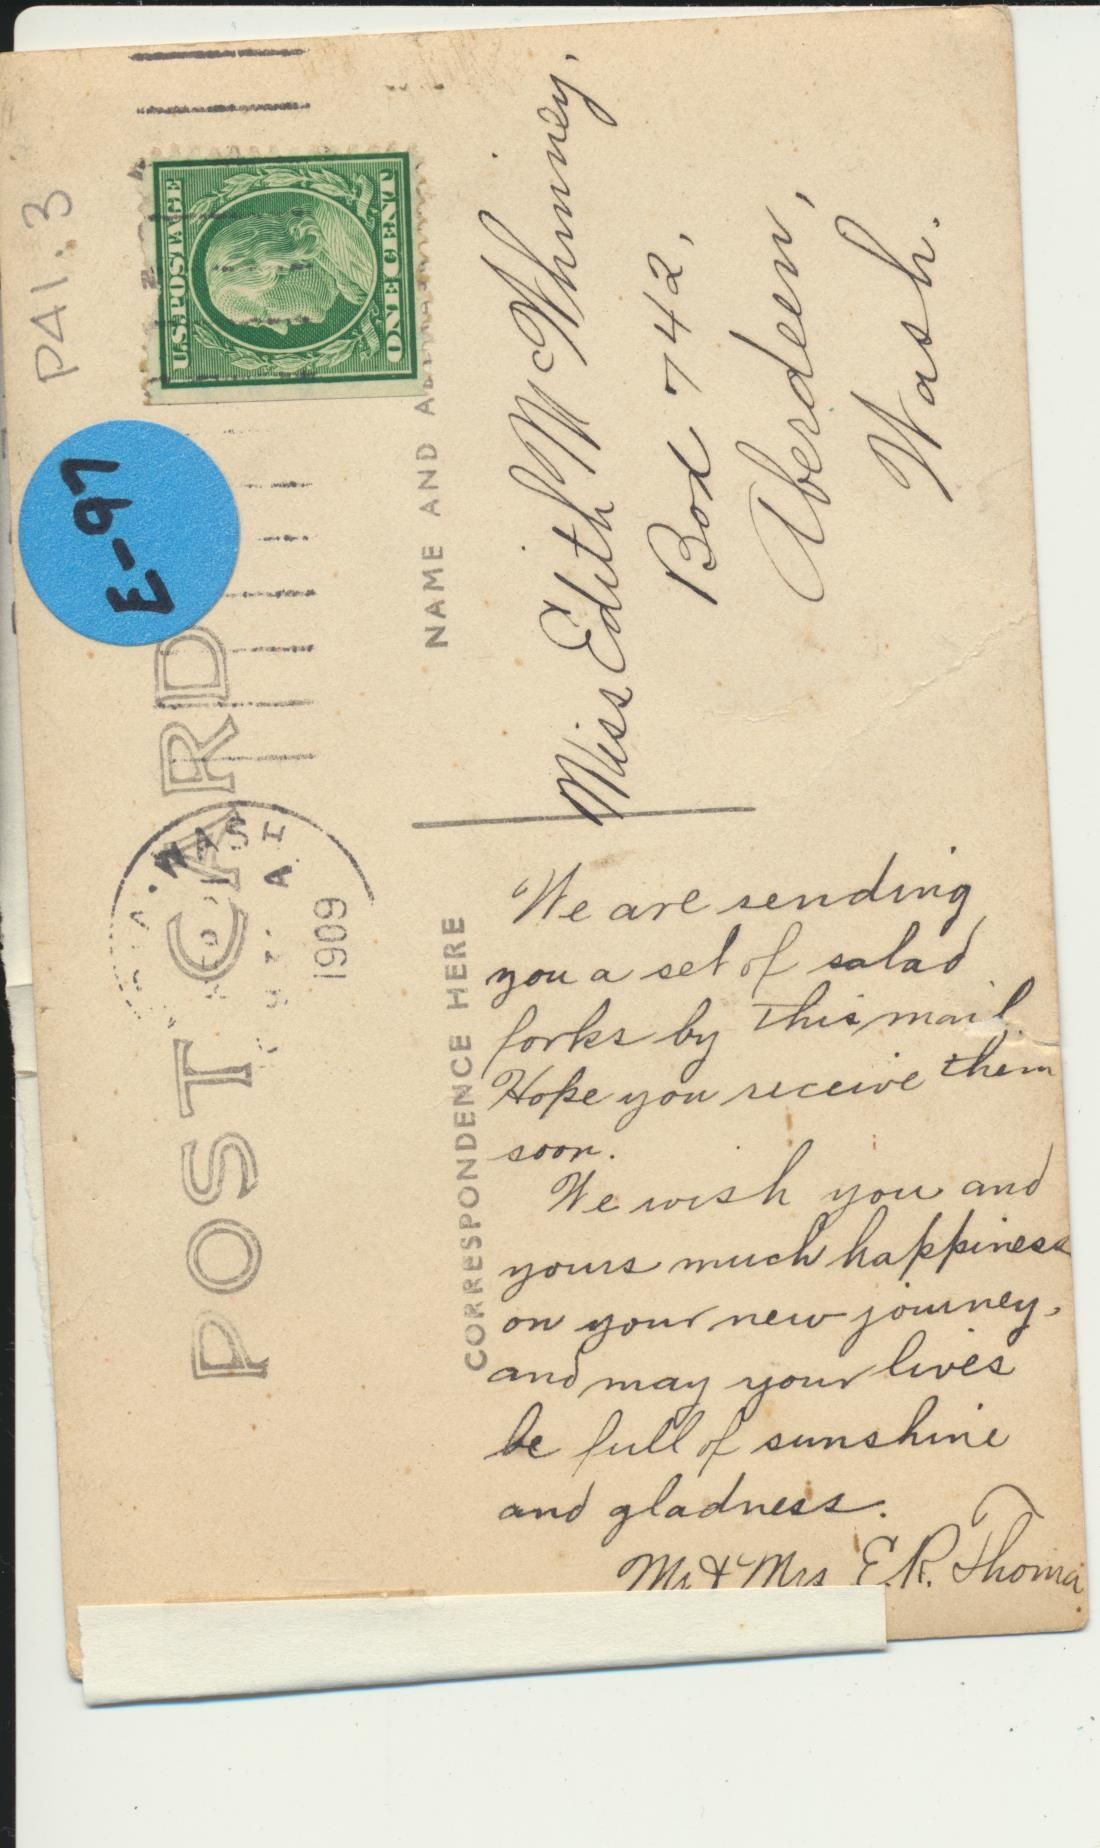 P41.3
E-97
POST CARD
WASH
1909
U.S. POSTAGE
ONE CENT
CORRESPONDENCE HERE
NAME AND
We are sending
you a set of salad
forks by this mail.
Hope you receive them
soon.
We wish you and
yours much happiness
on your new journey,
and may your lives
be full of sunshine
and gladness.
Mr & Mrs E.R. Thoma
Miss Edith McWhinney.
Box 742,
Aberdeen,
Wash.